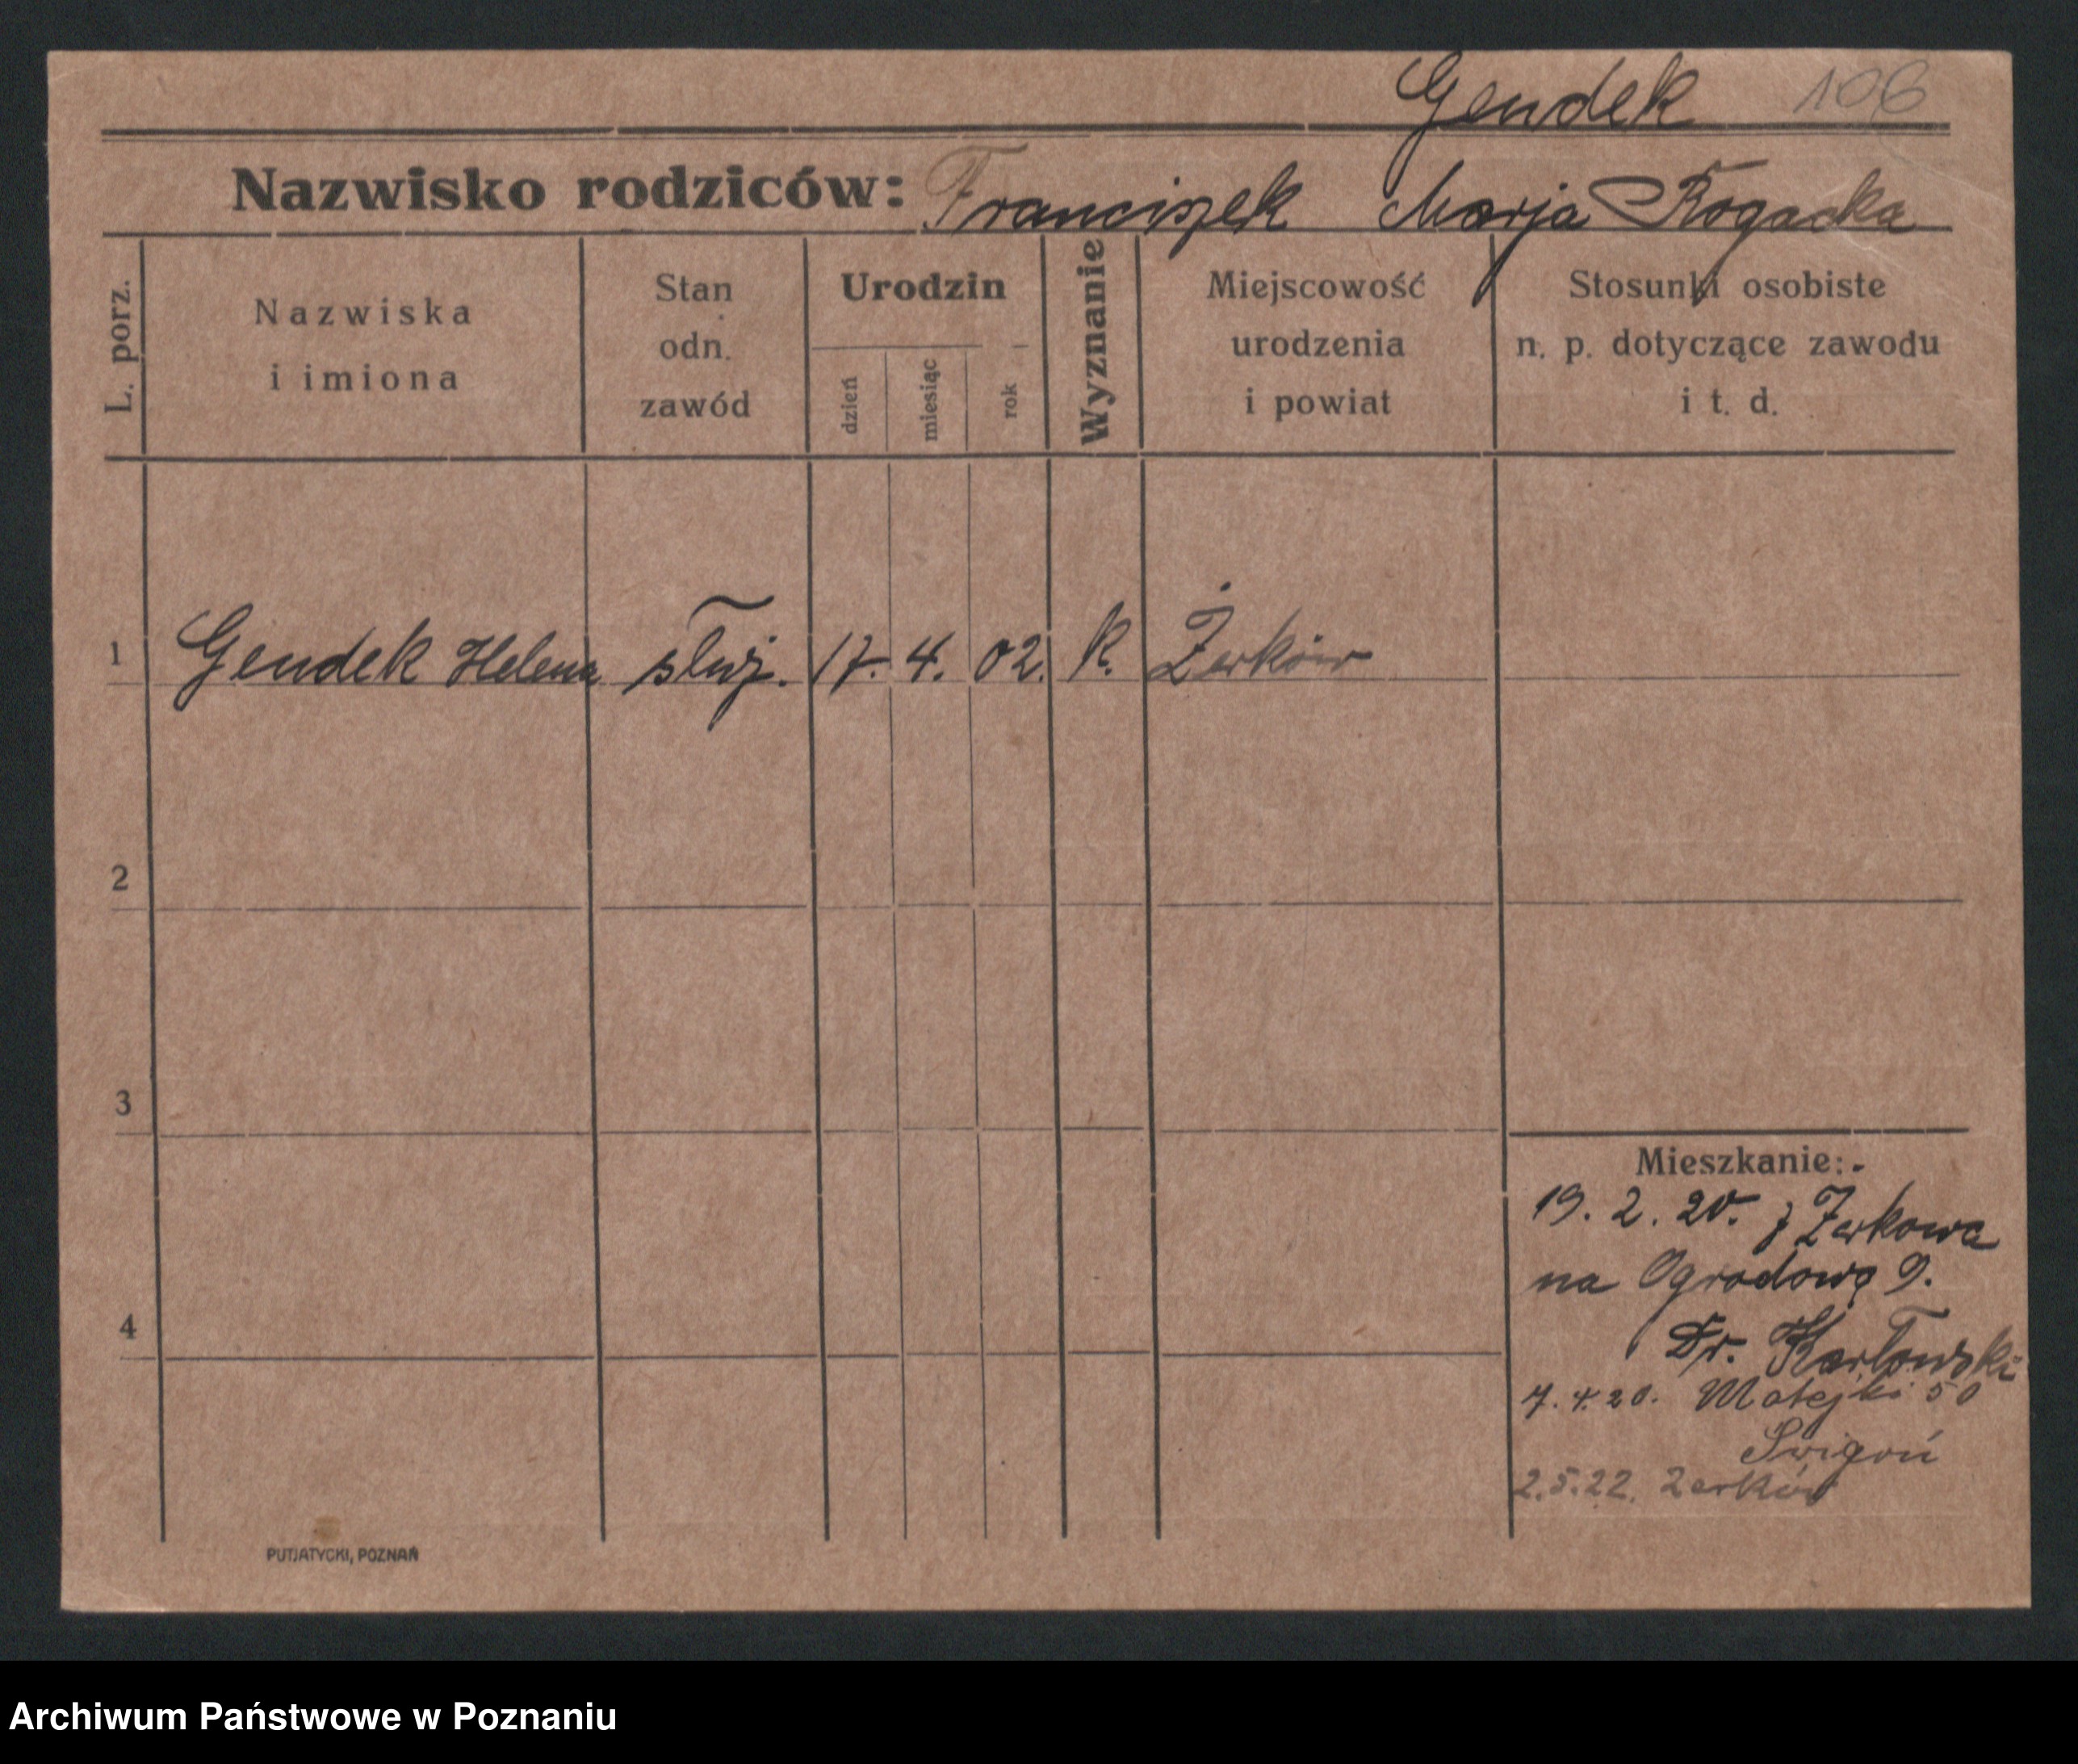 Gendek 106
Nazwisko rodziców: Franciszek Marja Rogacka
L. porz.
Nazwiska i imiona
Stan odn. zawód
Urodzin
dzień miesiąc rok
Wyznanie
Miejscowość urodzenia i powiat
Stosunki osobiste n. p. dotyczące zawodu i t. d.
1 Gendek Helena służ. 17. 4. 02. K. Żerków
2
3
Mieszkanie:
19. 2. 20. z Żerkowa
na Ogrodową 9.
4
Dr. Karłowski
7. 4. 20. Matejki 50
Swigoń
2.5.22. Zerków
PUTIATYCKI, POZNAŃ
Archiwum Państwowe w Poznaniu